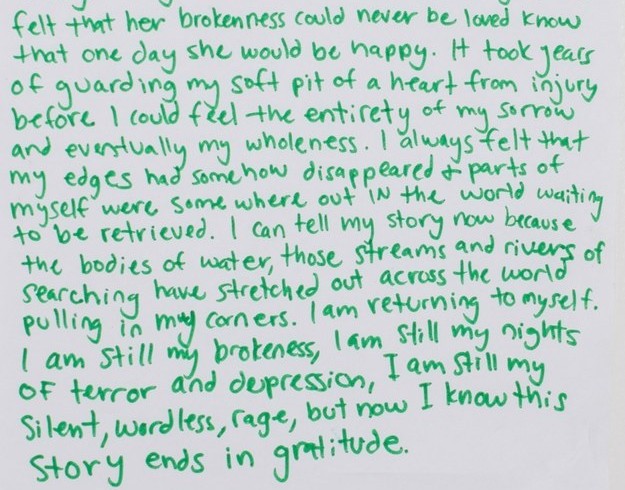 felt that her brokenness could never be loved know
that one day she would be happy. It took years
of guarding my soft pit of a heart from injury
before I could feel the entirety of my sorrow
and eventually my wholeness. I always felt that
my edges had somehow disappeared & parts of
myself were some where out IN the world waiting
to be retrieved. I can tell my story now because
the bodies of water, those streams and rivers of
searching have stretched out across the world
pulling in my corners. I am returning to myself.
I am still my brokeness, I am still my nights
OF terror and depression, I am still my
Silent, wordless, rage, but now I know this
Story ends in gratitude.